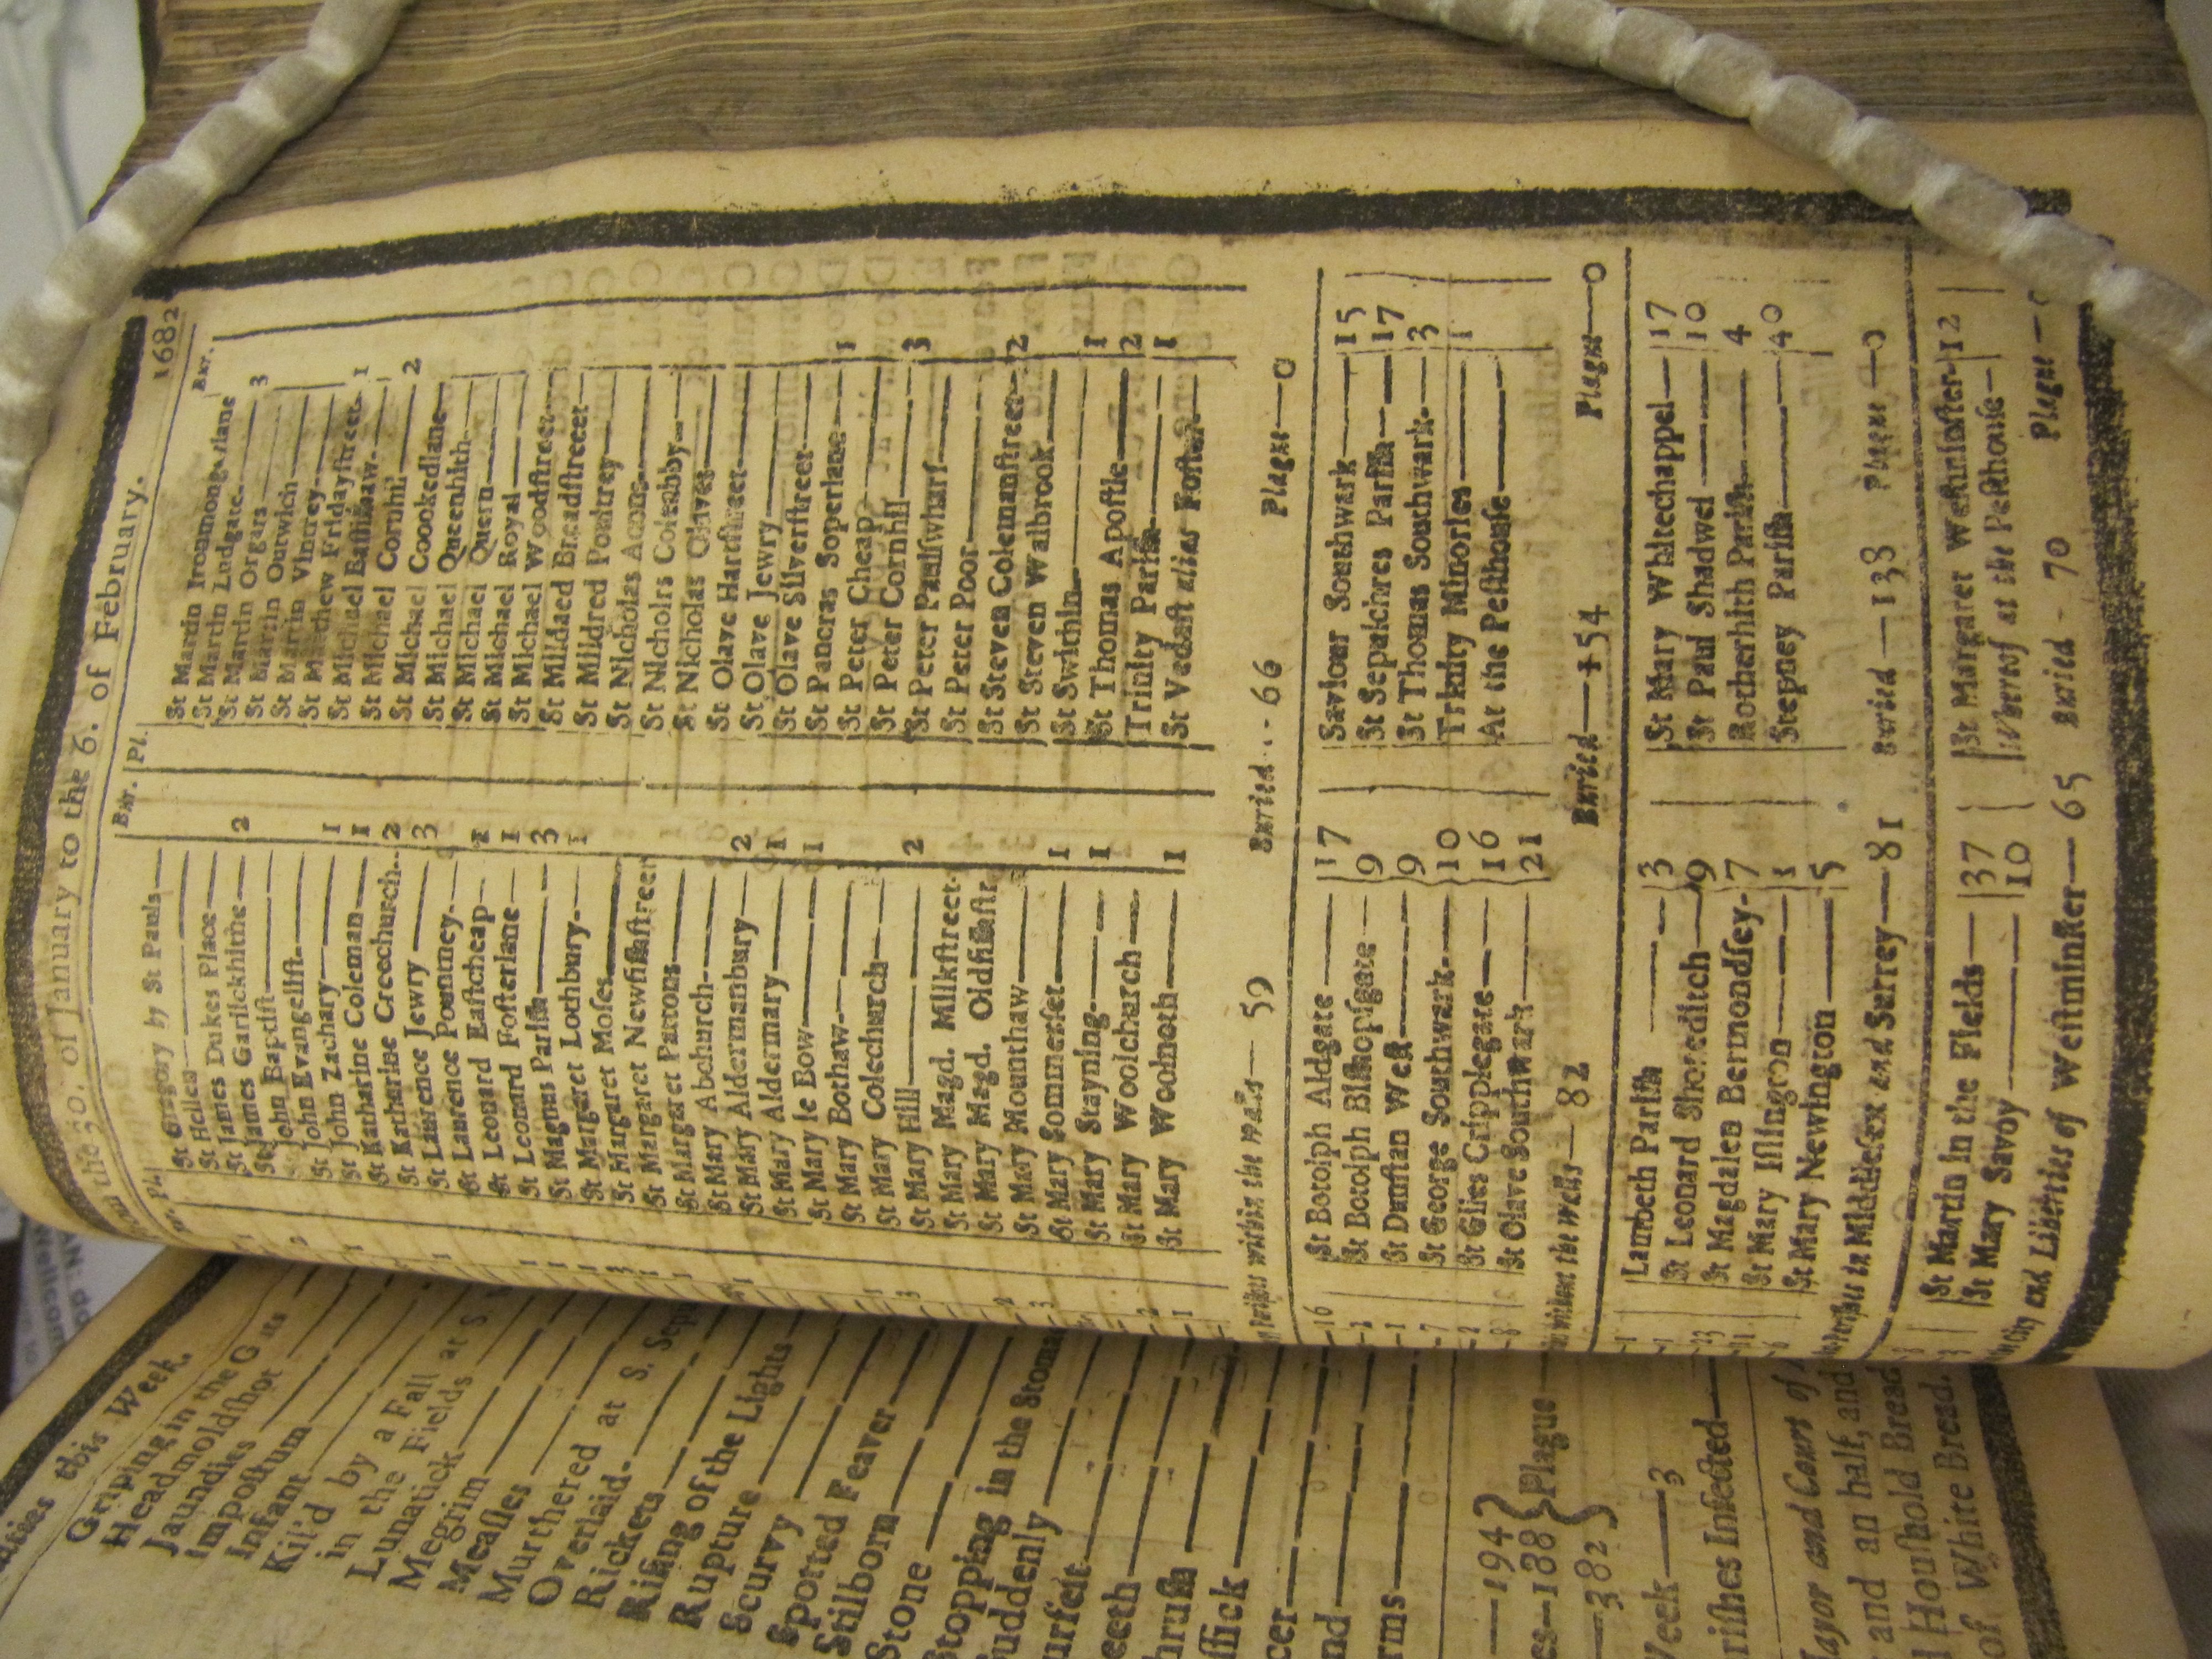 the 30. of January to the 6. of February. 1682
Bur. Pl. Bur.
St Gregory by St Pauls
St Hellen
St James Dukes Place
St James Garlickhithe 2
St John Baptist
St John Evangelist
St John Zachary 1
St Katharine Coleman 1
St Katharine Creechurch 2
St Laurence Jewry 3
St Laurence Pountney
St Leonard Eastcheap 1
St Leonard Fosterlane 1
St Magnus Parish 3
St Margaret Lothbury 1
St Margaret Moses
St Margaret Newfishstreet
St Margaret Pattons
St Mary Abchurch
St Mary Aldermanbury 2
St Mary Aldermary 1
St Mary le Bow 1
St Mary Bothaw
St Mary Colechurch
St Mary Hill 2
St Mary Magd. Milkstreet
St Mary Magd. Oldfishstr
St Mary Mounthaw
St Mary Sommerset 1
St Mary Stayning 1
St Mary Woolchurch
St Mary Woolnoth 1
St Martin Ironmongerlane
St Martin Ludgate
St Martin Orgars 3
St Martin Outwich
St Martin Vintrey
St Matthew Fridaystreet 1
St Michael Bassishaw
St Michael Cornhil 2
St Michael Coookedlane
St Michael Queenhith
St Michael Quern
St Michael Royal
St Michael Woodstreet
St Mildaed Breadstreet
St Mildred Poultrey
St Nicholas Acons
St Nicholrs Coleabby
St Nicholas Olaves
St Olave Hartstreet
St Olave Jewry
St Olave Silverstreet
St Pancras Soperlane 1
St Peter Cheap
St Peter Cornhil 3
St Peter Paulswharf
St Peter Poor
St Steven Colemanstreet 2
St Steven Walbrook
St Swithin 1
St Thomas Apostle 2
Trinity Parish 1
St Vedast alias Foster
Parishes within the walls 59 Buried 66 Plague 0
St Botolph Aldgate 17
St Botolph Bishopsgate 9
St Dunstan West 9
St George Southwark 10
St Giles Cripplegate 16
St Olave Southwark 21
Saviour Southwark 15
St Sepulchres Parish 17
St Thomas Southwark 3
Trinity Minories 1
At the Pesthouse
without the Walls 82 Buried 154 Plague 0
Lambeth Parish 3
St Leonard Shoreditch 9
St Magdalen Bermondsey 7
St Mary Islington 1
St Mary Newington 5
St Mary Whitechappel 17
St Paul Shadwel 10
Rotherhith Parish 4
Stepney Parish 40
in Middlesex and Surrey 81 Buried 138 Plague 0
St Martin in the Fields 37
St Mary Savoy 10
St Margaret Westminster 12
Whereof at the Pesthouse
City and Liberties of Westminster 65 Buried 70 Plague
this Week.
Griping in the G
Headmoldshot
Jaundies
Impostum
Infant
Kil'd by a Fall
in the Fields at S.
Lunatick
Megrim
Measles
Murthered at S. Sep
Overlaid
Rickets
Rising of the Lights
Rupture
Scurvy
Spotted Feaver
Stilborn
Stone
Stopping in the Stoma
uddenly
urfeit
eeth
hrush
ssick
cer
nd
rms
194
188
382
Plague
Week 3
rishes Infected
Mayor and Court of
and an half, and
Houshold Bread
of White Bread.